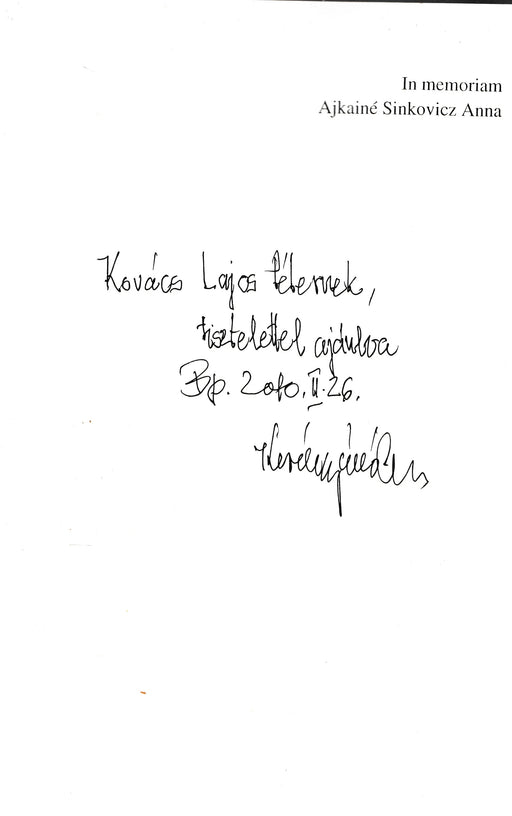 In memoriam
Ajkainé Sinkovicz Anna
Kovács Lajos Péternek,
tisztelettel ajánlva
Bp. 2010. II. 26.